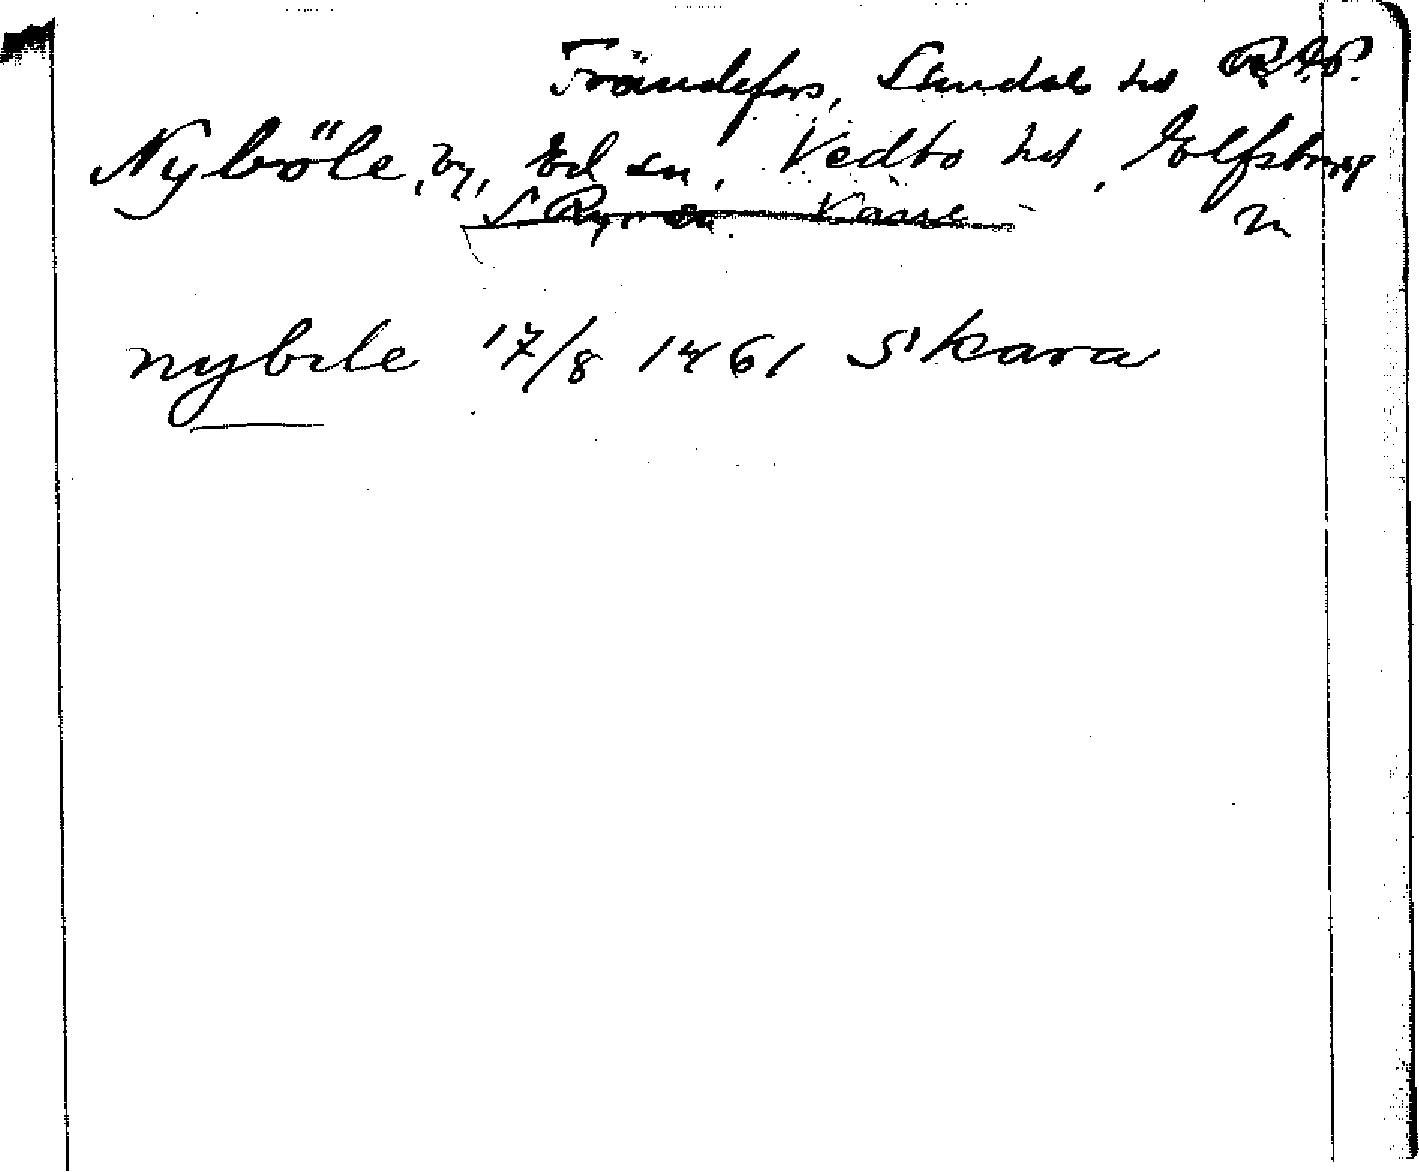 Frändefors, Sundals hd
Nyböle, by, Ed sn, Vedbo hd, Elfsborgs
S Ryr sn Väne
nybile 17/8 1461 Skara